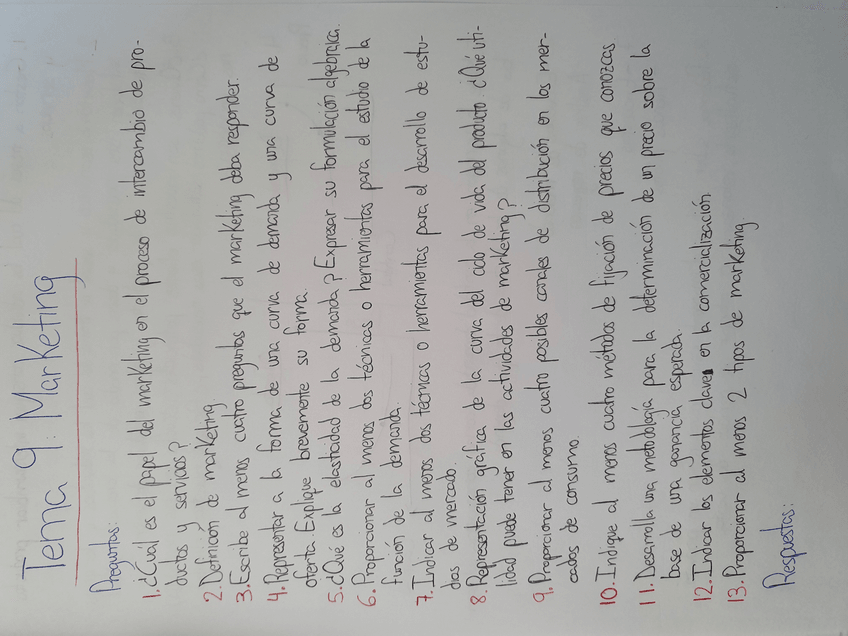 Tema 9: Marketing
Preguntas:
1. ¿Cuál es el papel del marketing en el proceso de intercambio de pro-
ductos y servicios?
2. Definición de marketing.
3. Escribe al menos cuatro preguntas que el marketing deba responder.
4. Representar a la forma de una curva de demanda y una curva de
oferta. Explique brevemente su forma.
5. ¿Qué es la elasticidad de la demanda? Expresar su formulación algebraica.
6. Proporcionar al menos dos técnicas o herramientas para el estudio de la
función de la demanda.
7. Indicar al menos dos técnicas o herramientas para el desarrollo de estu-
dios de mercado.
8. Representación gráfica de la curva del ciclo de vida del producto. ¿Qué uti-
lidad puede tener en las actividades de marketing?
9. Proporcionar al menos cuatro posibles canales de distribución en los mer-
cados de consumo.
10. Indique al menos cuatro métodos de fijación de precios que conozcas
11. Desarrolla una metodología para la determinación de un precio sobre la
base de una ganancia esperada.
12. Indicar los elementos claves en la comercialización
13. Proporcionar al menos 2 tipos de marketing.
Respuestas: